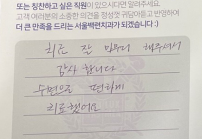 또는 칭찬하고 싶은 직원이 있으시다면 알려주세요.
고객 여러분의 소중한 의견을 정성껏 귀담아듣고 반영하여
더 큰 만족을 드리는 서울백련치과가 되겠습니다 :)
치료 잘 해주셔서
감사합니다
수면으로 편하게
치료했어요